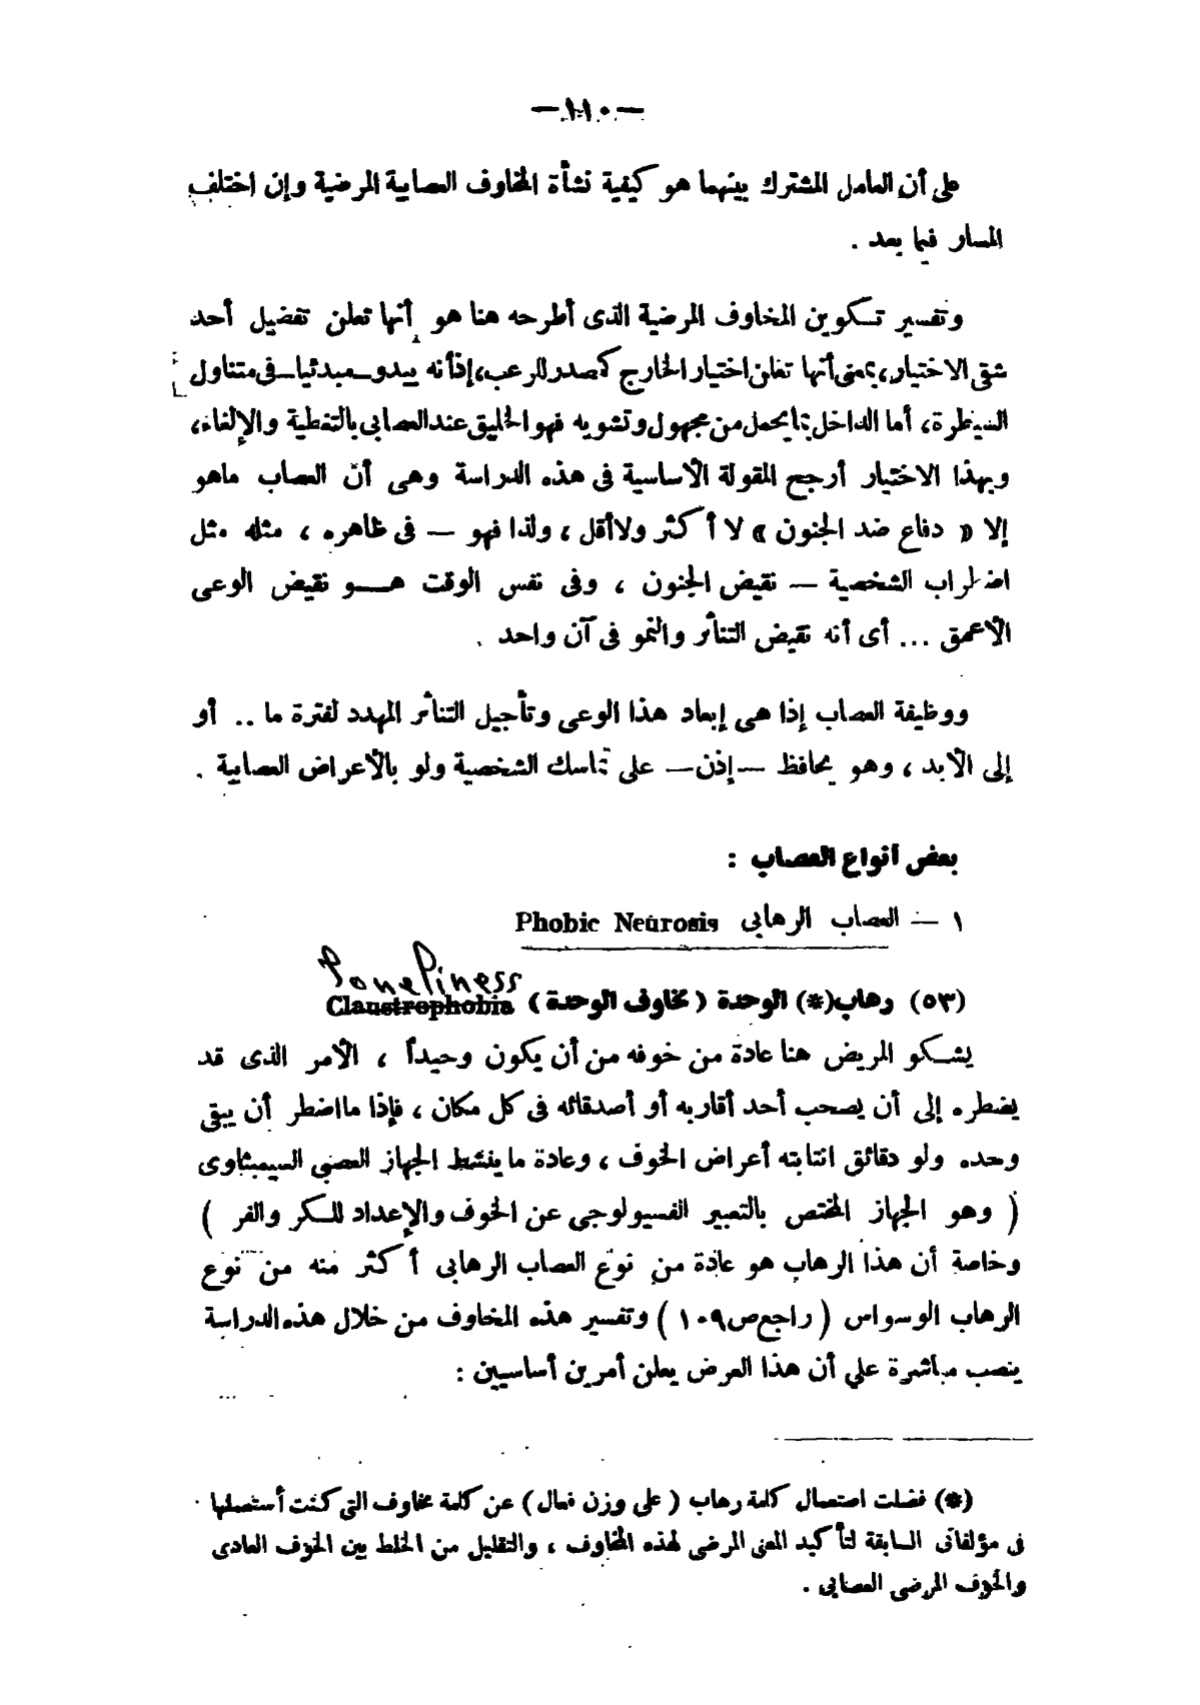 — ١١٠ —
على أن العامل المشترك بينهما هو كيفية نشأة المخاوف العصابية المرضية وإن اختلف
المسار فيما بعد .
وتفسير تكوين المخاوف المرضية الذى أطرحه هنا هو أنها تعلن تفضيل أحد
شقى الاختيار، بمعنى أنها تعلن اختيار الخارج كمصدر للرعب، إذ أنه يبدو ــ مبدئيا ــ فى متناول
السيطرة، أما الداخل بما يحمل من مجهول وتشويه فهو الخليق عند العصابى بالتغطية والإلغاء،
وبهذا الاختيار أرجح المقولة الأساسية فى هذه الدراسة وهى أن العصاب ماهو
إلا « دفاع ضد الجنون » لا أكثر ولا أقل ، ولذا فهو — فى ظاهره ، مثله مثل
اضطراب الشخصية — نقيض الجنون ، وفى نفس الوقت هــو نقيض الوعى
الأعمق ... أى أنه نقيض التناثر والنمو فى آن واحد .
ووظيفة العصاب إذا هى إبعاد هذا الوعى وتأجيل التناثر المهدد لفترة ما .. أو
إلى الأبد ، وهو يحافظ — إذن — على تماسك الشخصية ولو بالأعراض العصابية .
بعض أنواع العصاب :
١ — العصاب الرهابى Phobic Neurosis
Loneliness
(٥٣) رهاب(*) الوحدة ( مخاوف الوحدة ) Claustrophobia
يشكو المريض هنا عادة من خوفه من أن يكون وحيداً ، الأمر الذى قد
يضطره إلى أن يصحب أحد أقاربه أو أصدقائه فى كل مكان ، فإذا ما اضطر أن يبقى
وحده ولو دقائق انتابته أعراض الخوف ، وعادة ما ينشط الجهاز العصبى السيمبثاوى
( وهو الجهاز المختص بالتعبير الفسيولوجى عن الخوف والإعداد للكر والفر )
وخاصة أن هذا الرهاب هو عادة من نوع العصاب الرهابى أكثر منه من نوع
الرهاب الوسواس ( راجع ص ١٠٩ ) وتفسير هذه المخاوف من خلال هذه الدراسة
ينصب مباشرة على أن هذا العرض يعلن أمرين أساسيين :
(*) فضلت استعمال كلمة رهاب ( على وزن فعال ) عن كلمة مخاوف التى كنت أستعملها
فى مؤلفاتى السابقة لتأكيد المعنى المرضى لهذه المخاوف ، والتقليل من الخلط بين الخوف العادى
والخوف المرضى العصابى .